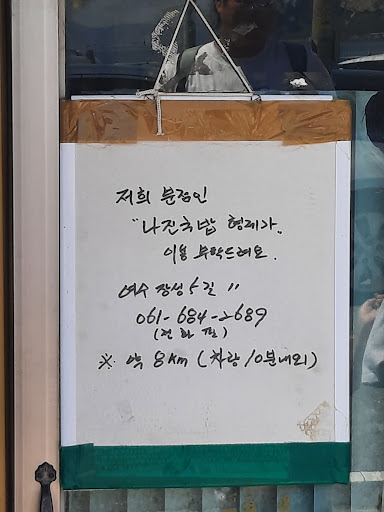 저희 분점인
"나진국밥 형제가"
이용 부탁드려요.
여수 장성5길 11
061-684-2689
(전화 필)
※ 약 8km (차량 10분내외)